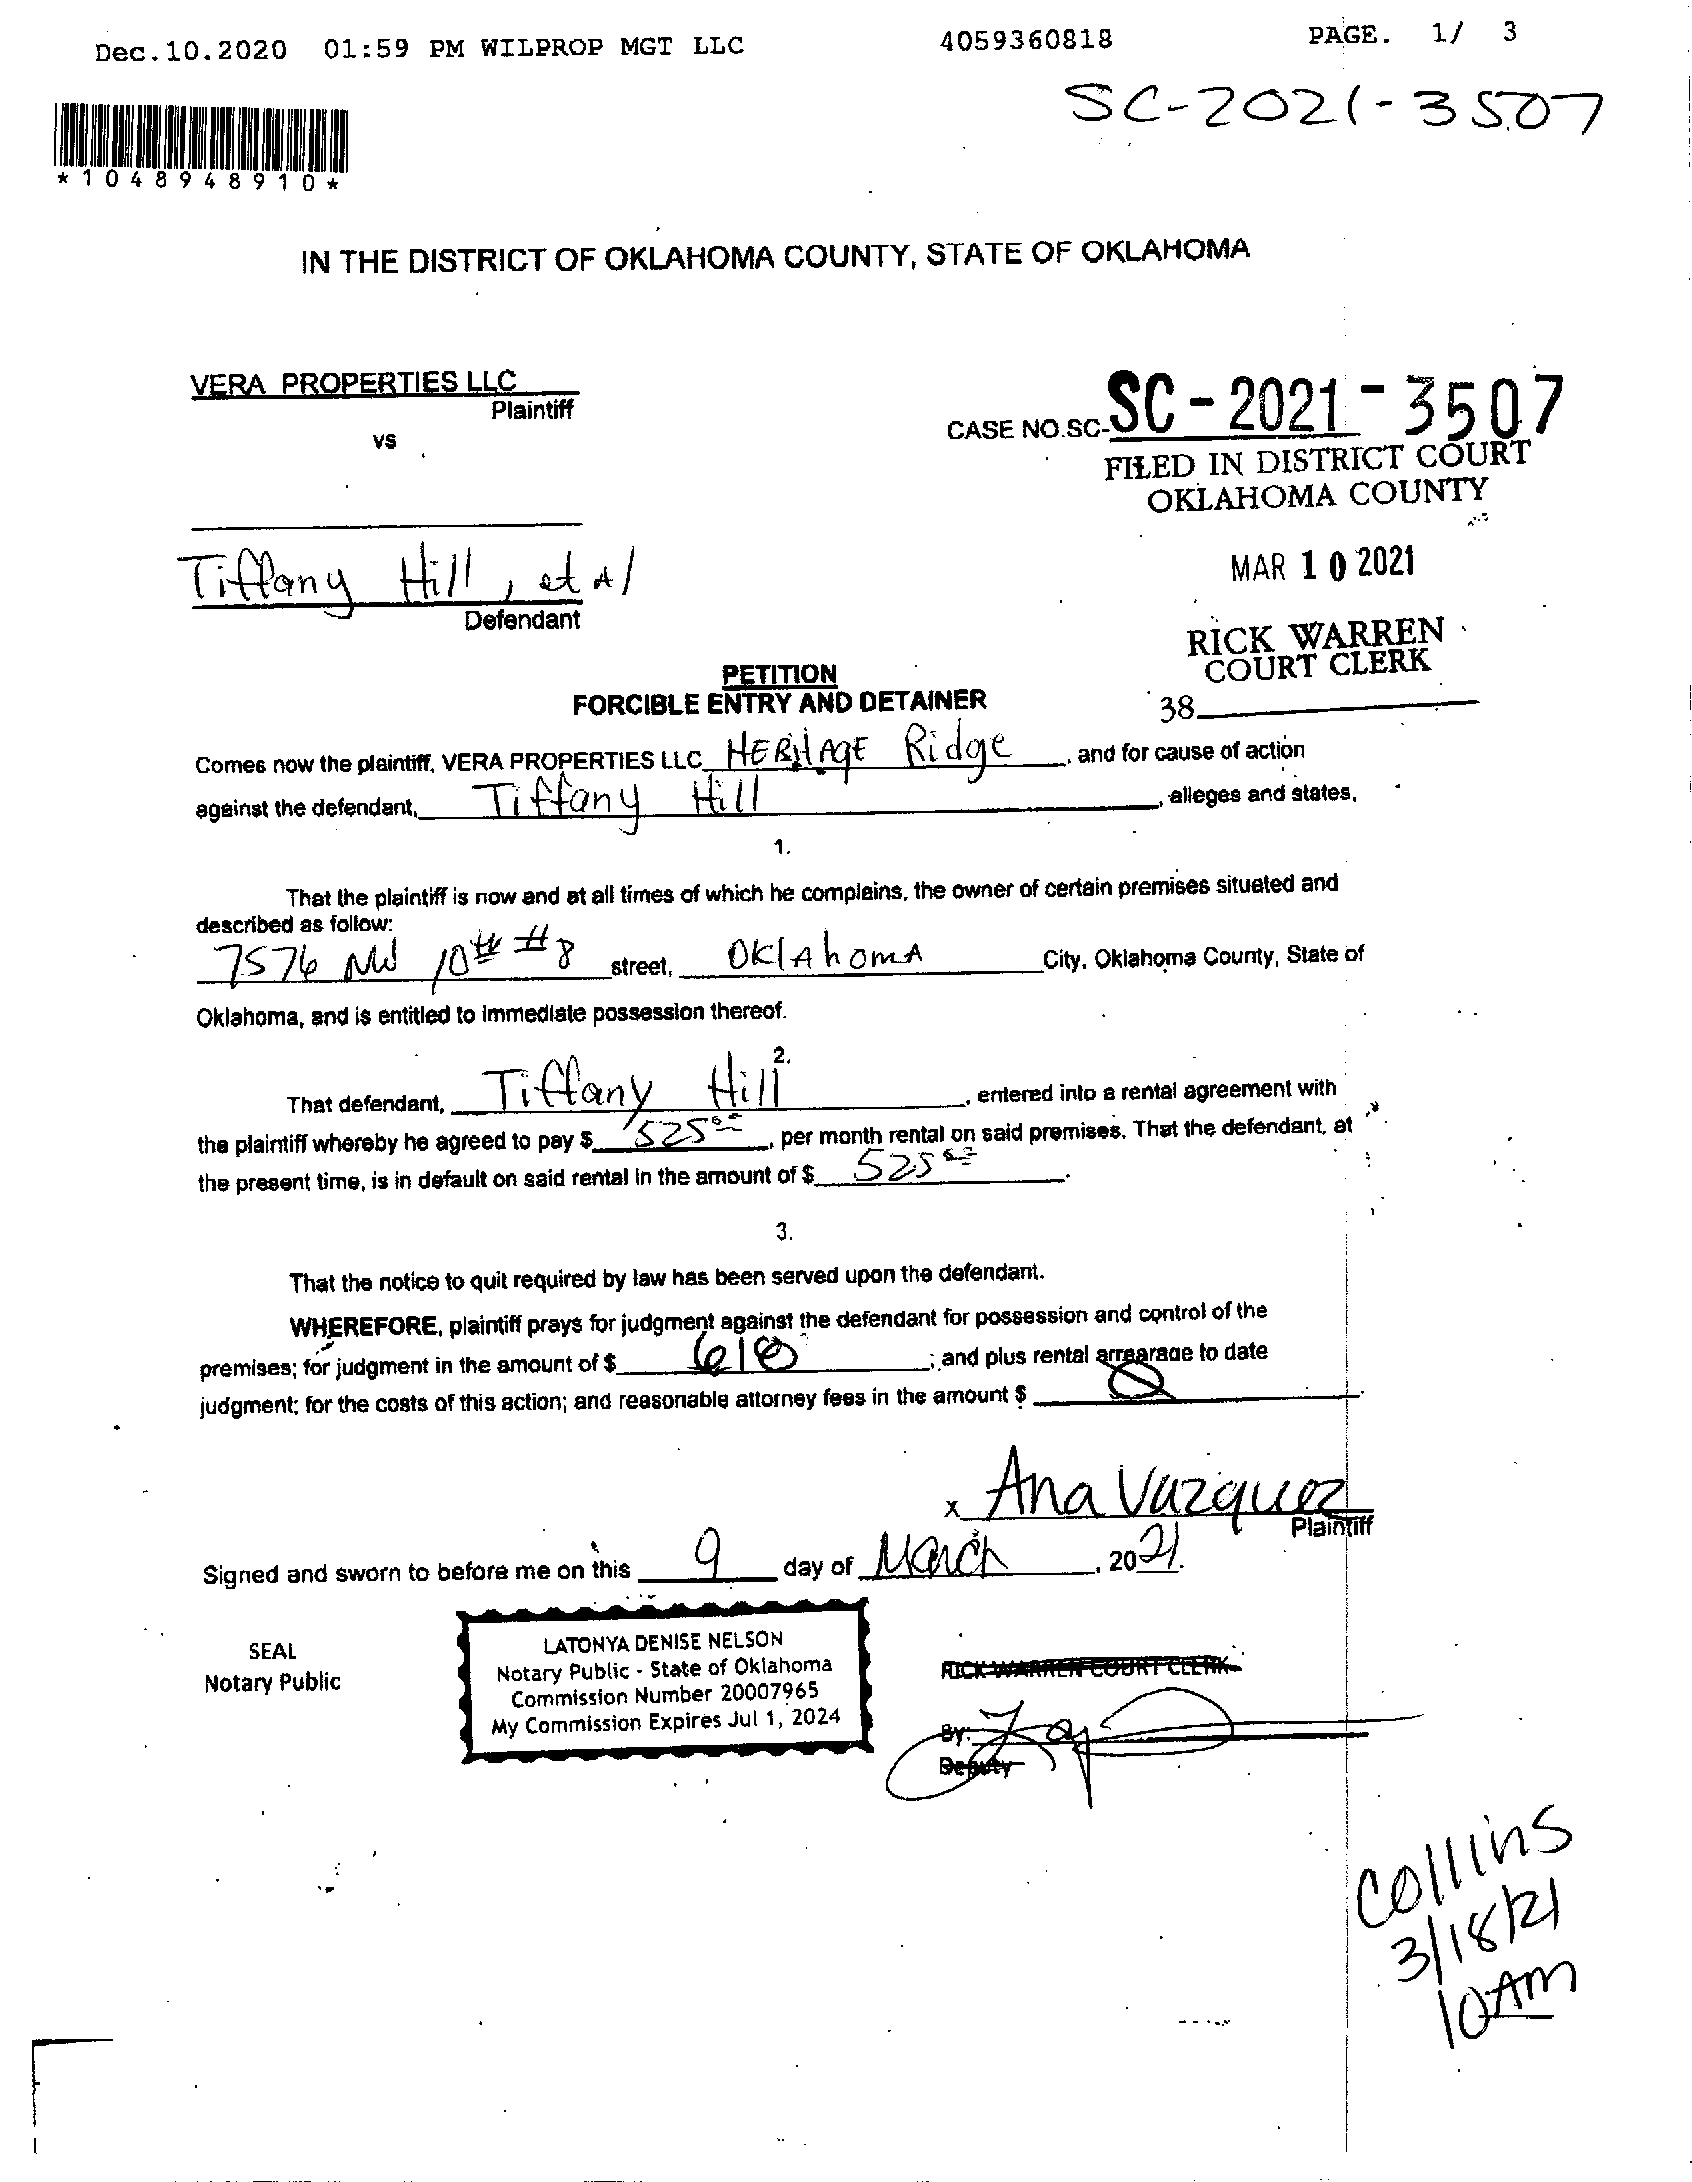 Dec.10.2020 01:59 PM WILPROP MGT LLC 4059360818 PAGE. 1/ 3
SC-2021-3507
*1048948910*
IN THE DISTRICT OF OKLAHOMA COUNTY, STATE OF OKLAHOMA
VERA PROPERTIES LLC
Plaintiff
vs
CASE NO.SC-SC-2021-3507
FILED IN DISTRICT COURT
OKLAHOMA COUNTY
MAR 10 2021
Tiffany Hill, et al
Defendant
RICK WARREN
COURT CLERK
38
PETITION
FORCIBLE ENTRY AND DETAINER
Comes now the plaintiff, VERA PROPERTIES LLC HERitAgE Ridge, and for cause of action
against the defendant, Tiffany Hill, alleges and states,
1.
That the plaintiff is now and at all times of which he complains, the owner of certain premises situated and
described as follow:
7576 NW 10th #8 street, OKlAhomA City, Oklahoma County, State of
Oklahoma, and is entitled to immediate possession thereof.
2.
That defendant, Tiffany Hill, entered into a rental agreement with
the plaintiff whereby he agreed to pay $ 525.00, per month rental on said premises. That the defendant, at
the present time, is in default on said rental in the amount of $ 525.00.
3.
That the notice to quit required by law has been served upon the defendant.
WHEREFORE, plaintiff prays for judgment against the defendant for possession and control of the
premises; for judgment in the amount of $ ; and plus rental arrearage to date
judgment; for the costs of this action; and reasonable attorney fees in the amount $ 0.
x Ana Vazquez
Plaintiff
Signed and sworn to before me on this 9 day of March, 2021.
SEAL
Notary Public
LATONYA DENISE NELSON
Notary Public - State of Oklahoma
Commission Number 20007965
My Commission Expires Jul 1, 2024
RICK WARREN COURT CLERK
By:
Deputy
Collins
3/18/21
10AM